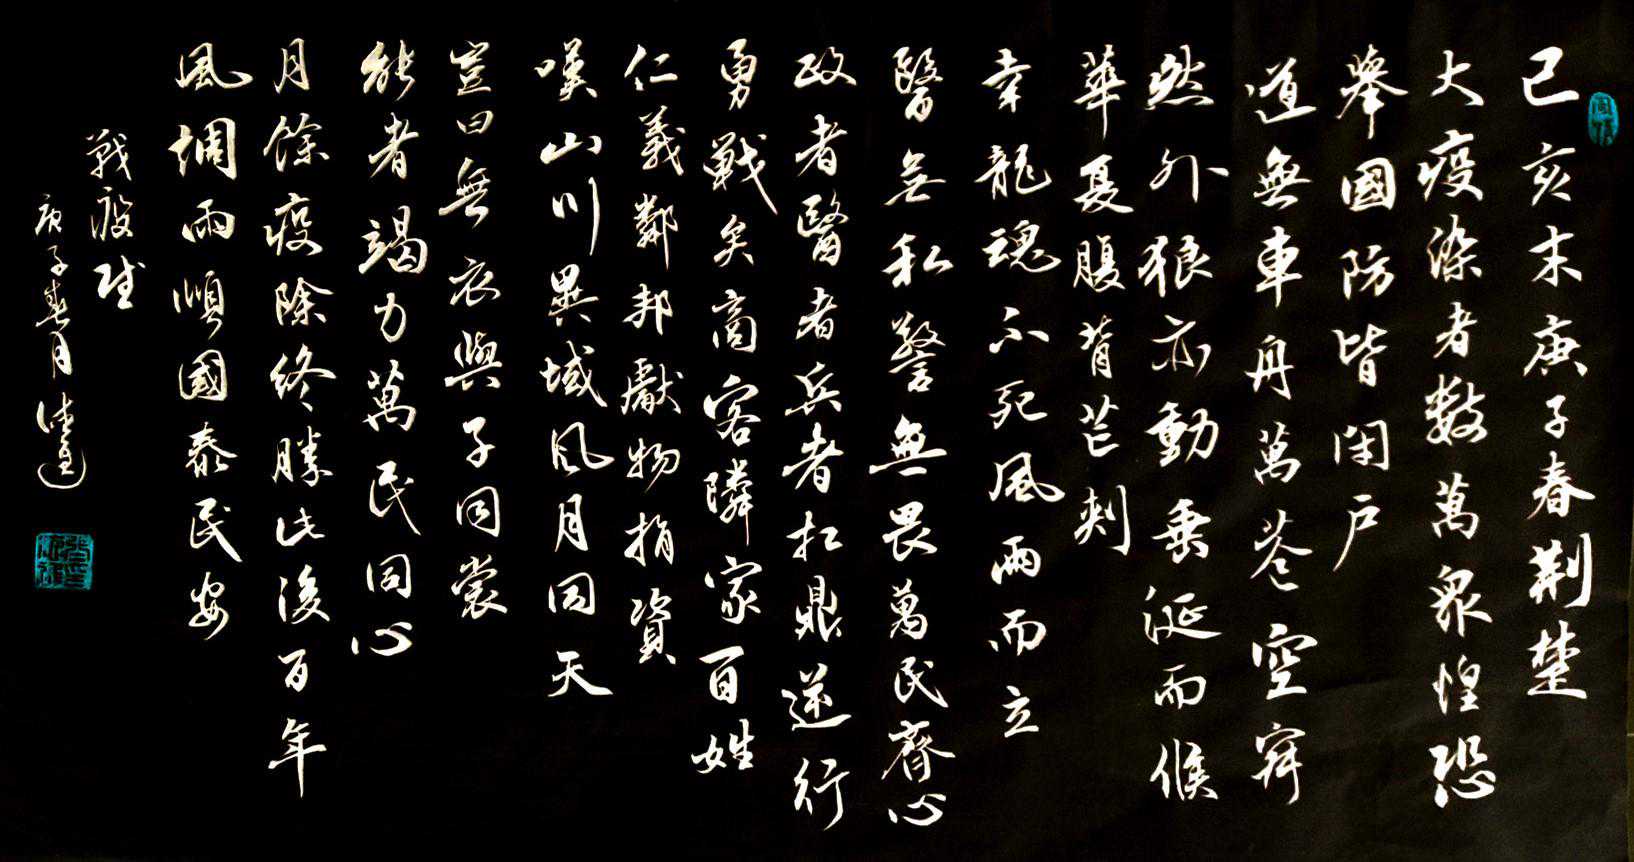 已亥末庚子春荆楚
大疫染者數萬眾惶恐
舉國防皆閉户
道無車舟萬巷空寂
然外狼亦動垂涎而候
華夏腹背芒刺
幸龍魂不死風雨而立
醫無私警無畏萬民齊心
政者醫者兵者扛鼎逆行
勇戰矣商客隣家百姓
仁義鄰邦獻物捐資
嘆山川異域風月同天
豈曰無衣與子同裳
能者竭力萬民同心
月餘疫除終勝此後百年
風調雨順國泰民安
戰疫賦
庚子春月